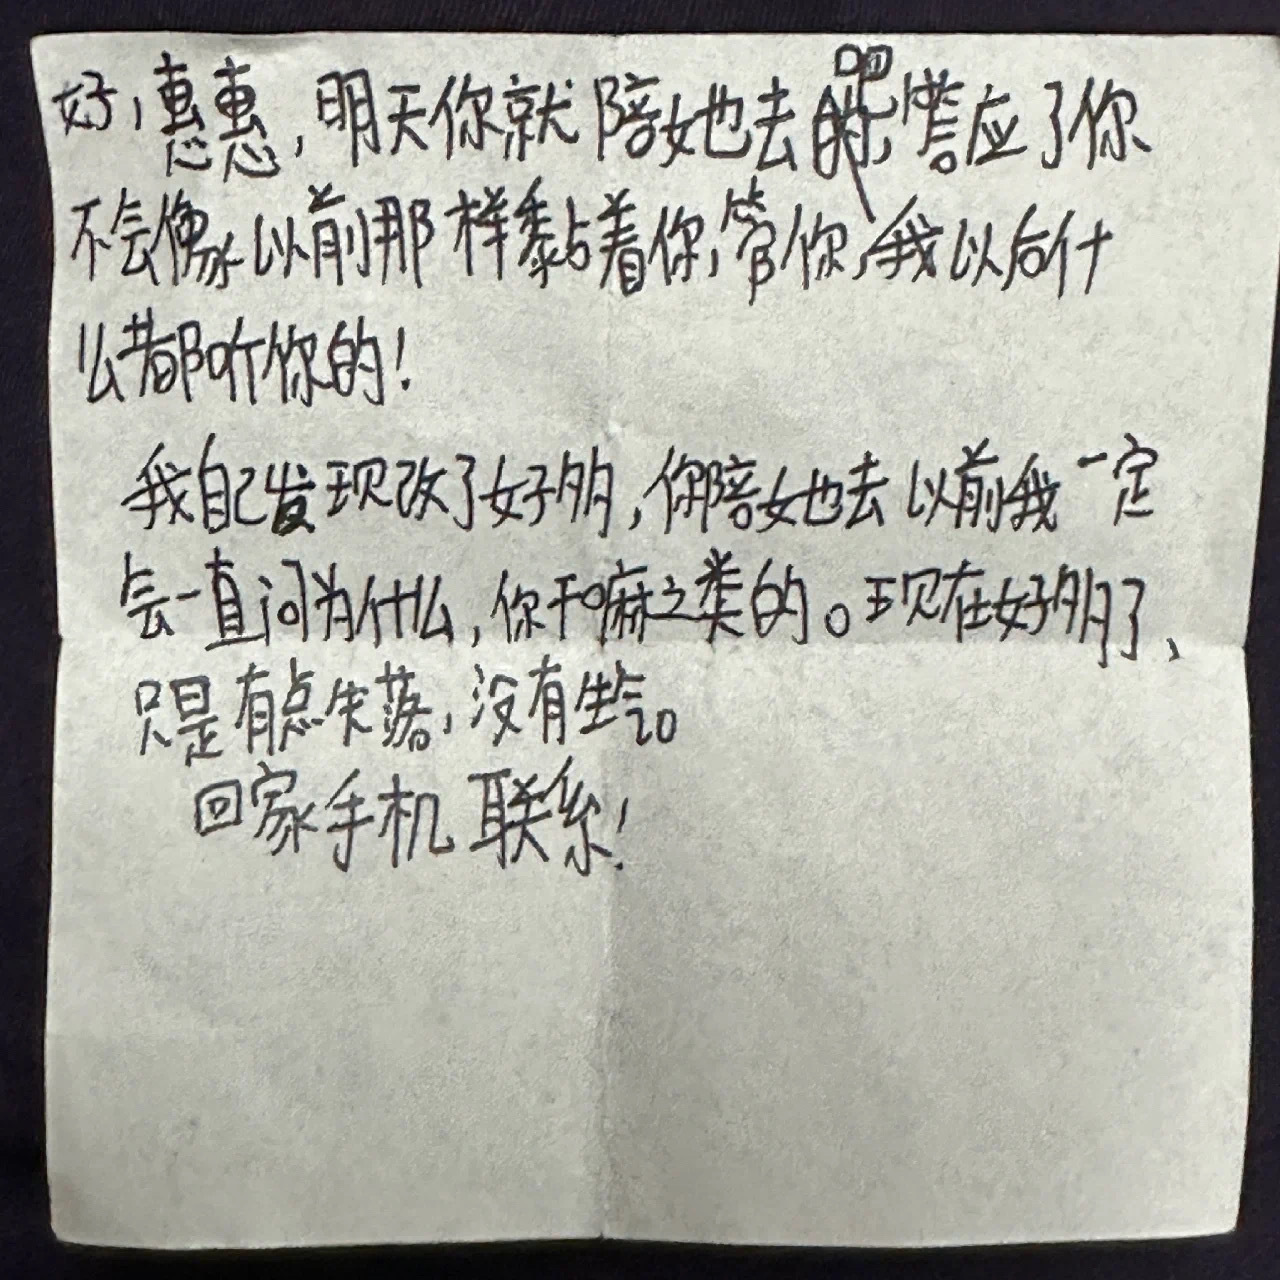 好，惠惠，明天你就陪她去吧，答应了你
不会像以前那样黏着你，管你，我以后什
么都听你的！
我自己发现改了好多，你陪她去以前我一定
会一直问为什么，你干嘛之类的。现在好多了、
只是有点失落，没有生气。
回家手机联系！